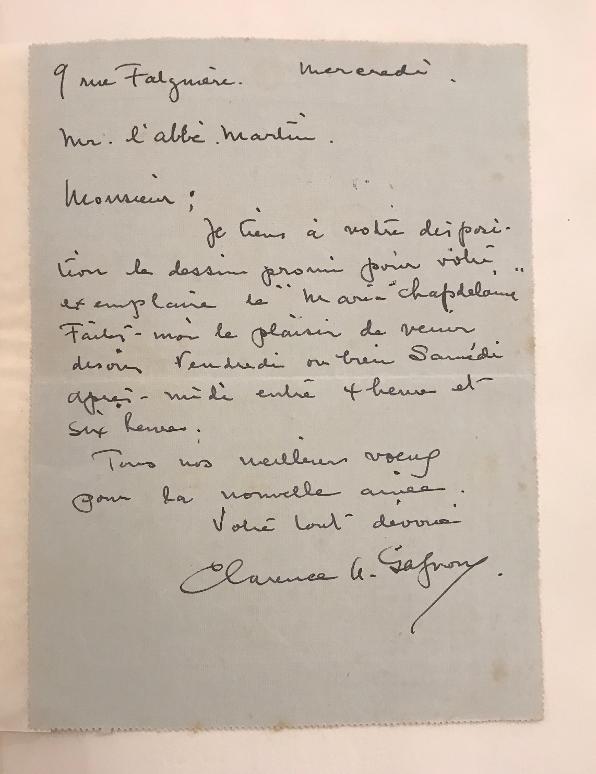 9 rue Falguière. Mercredi.
Mr. l'abbé. Martin.
Monsieur;
Je tiens à votre disposi-
tion le dessin promis pour votre
exemplaire de "Maria Chapdelaine"
Faites-moi le plaisir de venir
disons Vendredi ou bien Samedi
après-midi entre 4 heures et
six heures.
Tous nos meilleurs voeux
pour la nouvelle année.
Votre tout dévoué
Clarence A. Gagnon.